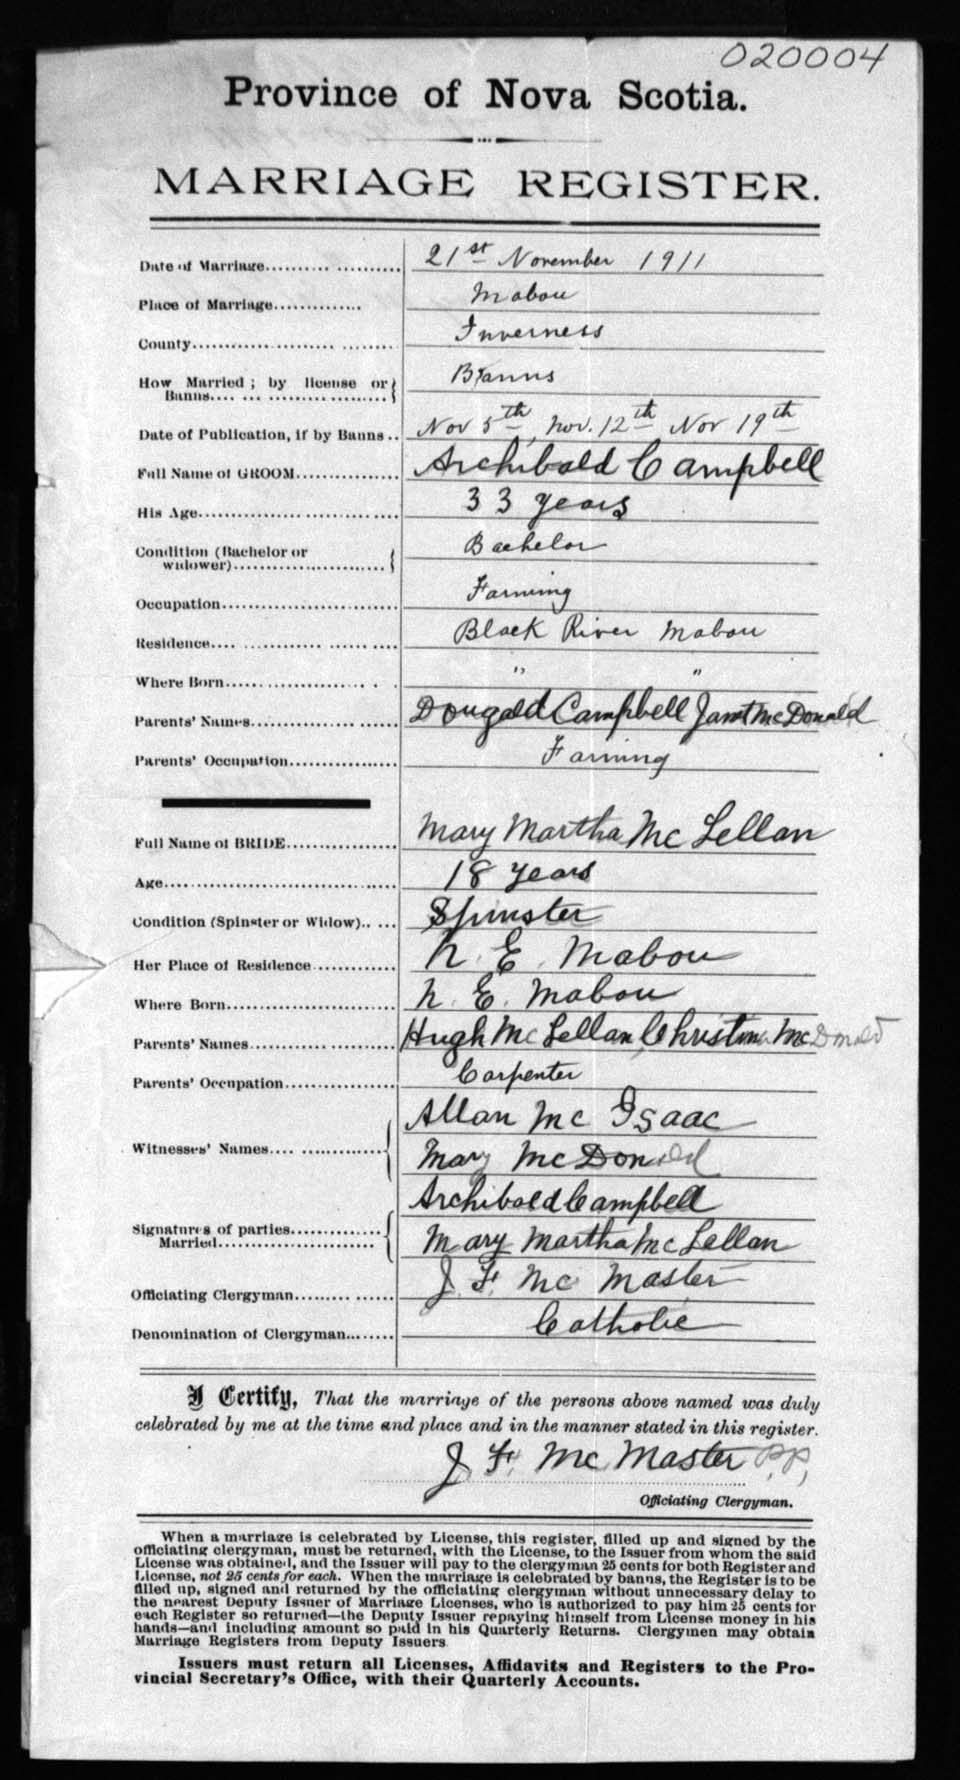 020004
Province of Nova Scotia.
MARRIAGE REGISTER.
Date of Marriage..................... 21st November 1911
Place of Marriage............. Mabou
County........................ Inverness
How Married ; by license or Banns.... Banns
Date of Publication, if by Banns .. Nov 5th, Nov. 12th Nov 19th
Full Name of GROOM................ Archibald Campbell
His Age............................... 33 years
Condition (Bachelor or
widower)........................ Bachelor
Occupation............................ Farming
Residence............................. Black River Mabou
Where Born........................ " "
Parents' Names........................ Dougald Campbell Janet McDonald
Parents' Occupation................. Farming
Full Name of BRIDE................ Mary Martha McLellan
Age.................................... 18 years
Condition (Spinster or Widow)..... Spinster
Her Place of Residence............. N. E. Mabou
Where Born.......................... N. E. Mabou
Parents' Names..................... Hugh McLellan, Christina McDonald
Parents' Occupation................. Carpenter
Witnesses' Names.................. Allan McIsaac
Mary McDonald
Signatures of parties.............. Archibald Campbell
Married........................ Mary Martha McLellan
Officiating Clergyman............... J. F. McMaster
Denomination of Clergyman........ Catholic
I Certify, That the marriage of the persons above named was duly
celebrated by me at the time and place and in the manner stated in this register.
J. F. McMaster P.P.,
Officiating Clergyman.
When a marriage is celebrated by License, this register, filled up and signed by the
officiating clergyman, must be returned, with the License, to the Issuer from whom the said
License was obtained, and the Issuer will pay to the clergyman 25 cents for both Register and
License, not 25 cents for each. When the marriage is celebrated by banns, the Register is to be
filled up, signed and returned by the officiating clergyman without unnecessary delay to
the nearest Deputy Issuer of Marriage Licenses, who is authorized to pay him 25 cents for
each Register so returned—the Deputy Issuer repaying himself from License money in his
hands—and including amount so paid in his Quarterly Returns. Clergymen may obtain
Marriage Registers from Deputy Issuers
Issuers must return all Licenses, Affidavits and Registers to the Pro-
vincial Secretary's Office, with their Quarterly Accounts.